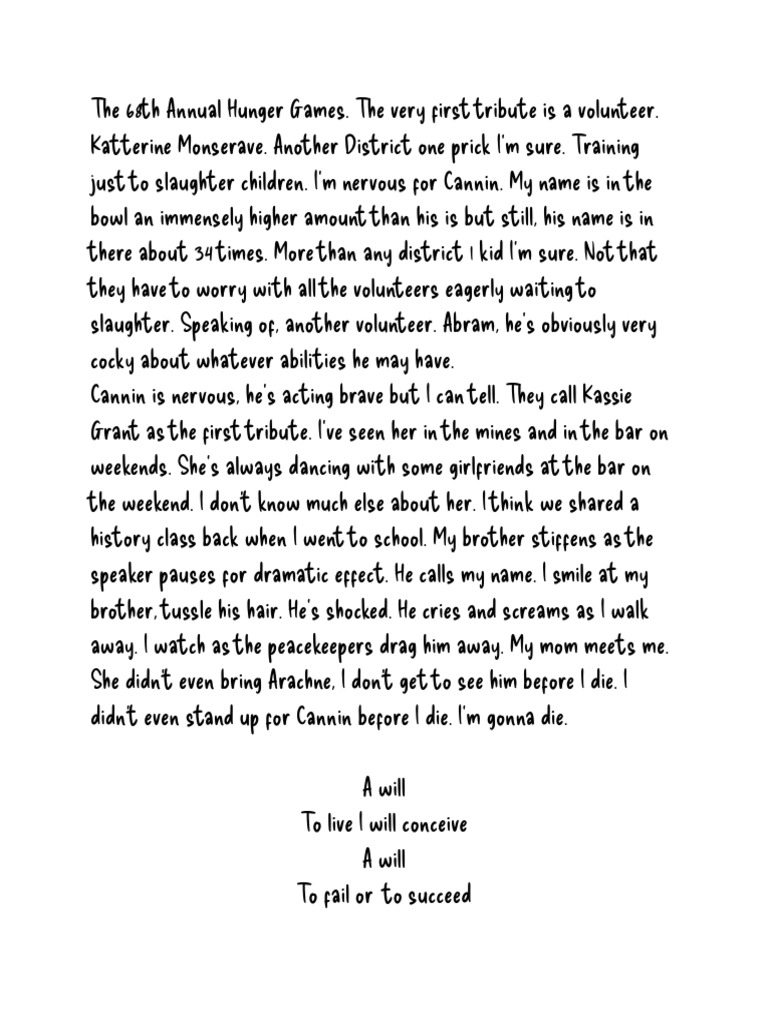 The 68th Annual Hunger Games. The very first tribute is a volunteer.
Katterine Monserave. Another District one prick I'm sure. Training
just to slaughter children. I'm nervous for Cannin. My name is in the
bowl an immensely higher amount than his is but still, his name is in
there about 34 times. More than any district 1 kid I'm sure. Not that
they have to worry with all the volunteers eagerly waiting to
slaughter. Speaking of, another volunteer. Abram, he's obviously very
cocky about whatever abilities he may have.
Cannin is nervous, he's acting brave but I can tell. They call Kassie
Grant as the first tribute. I've seen her in the mines and in the bar on
weekends. She's always dancing with some girlfriends at the bar on
the weekend. I don't know much else about her. I think we shared a
history class back when I went to school. My brother stiffens as the
speaker pauses for dramatic effect. He calls my name. I smile at my
brother, tussle his hair. He's shocked. He cries and screams as I walk
away. I watch as the peacekeepers drag him away. My mom meets me.
She didn't even bring Arachne, I don't get to see him before I die. I
didn't even stand up for Cannin before I die. I'm gonna die.
A will
To live I will conceive
A will
To fail or to succeed